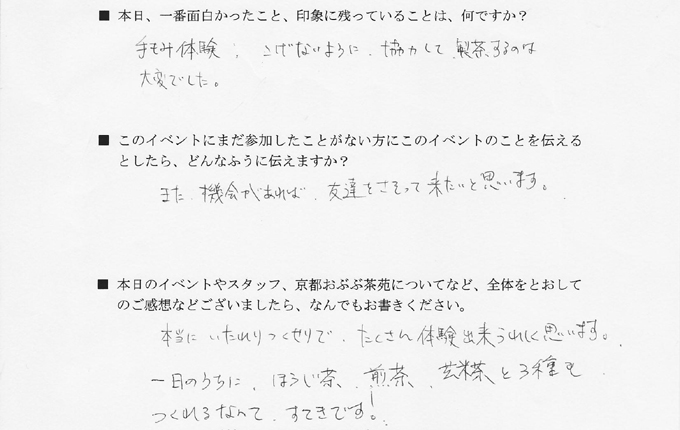 ■ 本日、一番面白かったこと、印象に残っていることは、何ですか？
手もみ体験、こげないように、協力して製茶するのは
大変でした。
■ このイベントにまだ参加したことがない方にこのイベントのことを伝える
としたら、どんなふうに伝えますか？
また、機会があれば、友達をさそって来たいと思います。
■ 本日のイベントやスタッフ、京都おぶぶ茶苑についてなど、全体をとおして
のご感想などございましたら、なんでもお書きください。
本当にいたれりつくせりで、たくさん体験出来うれしく思います。
一日のうちに、ほうじ茶、煎茶、玄米茶と3種も
つくれるなんて、すてきです！